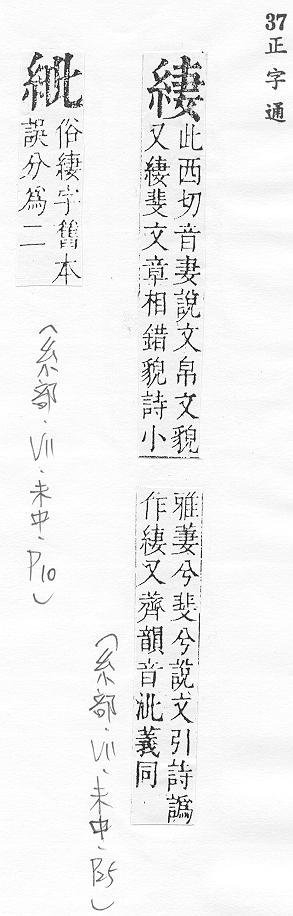 37正字通
緀
此西切音妻說文帛文貌
又緀斐文章相錯貌詩小
雅萋兮斐兮說文引詩譌
作緀又薺韻音泚義同
(糸部.VII.未中.P25)
紪
俗緀字舊本
誤分爲二
(糸部.VII.未中.P10)